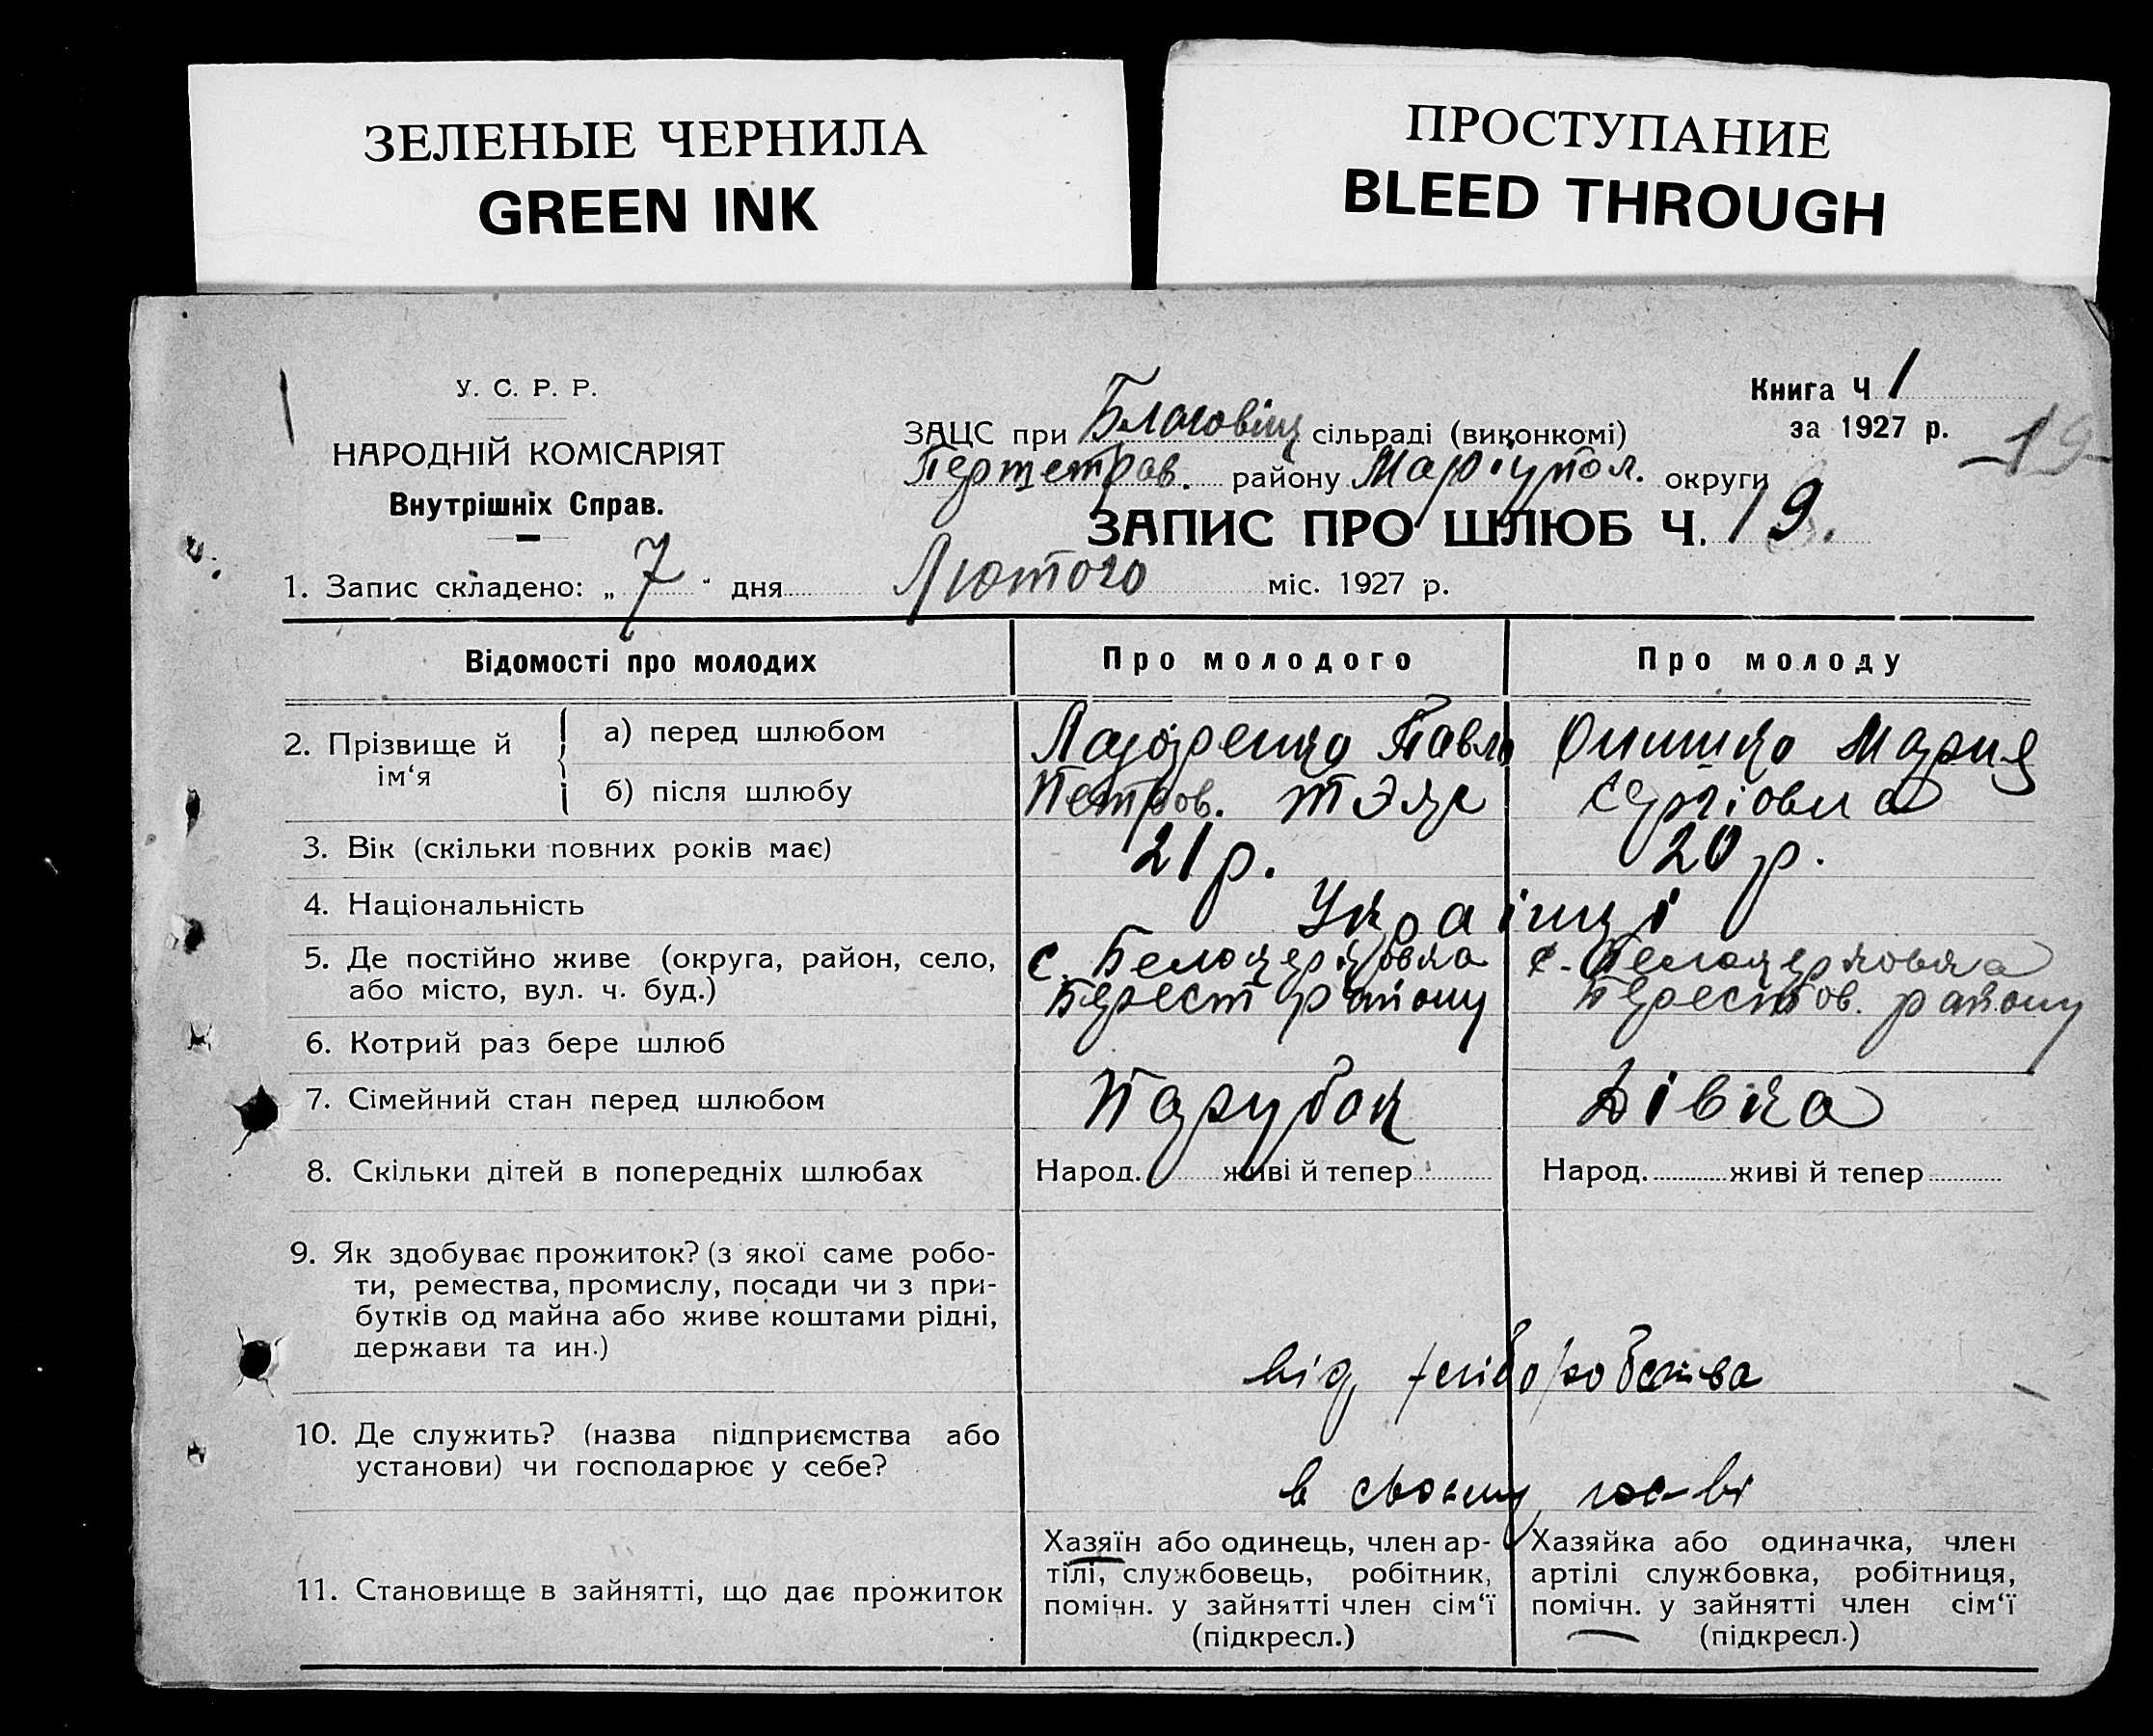 ЗЕЛЕНЫЕ ЧЕРНИЛА
GREEN INK
ПРОСТУПАНИЕ
BLEED THROUGH
У. С. Р. Р.
НАРОДНІЙ КОМІСАРІЯТ
Внутрішніх Справ.
Книга Ч 1
за 1927 р.
19
ЗАЦС при Благовіщ сільраді (виконкомі)
району Маріупол. округи
ЗАПИС ПРО ШЛЮБ Ч. 19.
1. Запис складено: „ 7 " дня Лютого міс. 1927 р.
Відомості про молодих
Про молодого
Про молоду
2. Прізвище й ім‘я
а) перед шлюбом
Павло
Онишко Мария
б) після шлюбу
Петров.
Сергіовна
3. Вік (скільки повних років має)
21 р.
20 р.
4. Національність
Українці
5. Де постійно живе (округа, район, село,
або місто, вул. ч. буд.)
с. Белоцерковка
Берест району
с. Белоцерковка
Берестов. району
6. Котрий раз бере шлюб
7. Сімейний стан перед шлюбом
Парубок
Дівка
8. Скільки дітей в попередніх шлюбах
Народ. живі й тепер
Народ. живі й тепер
9. Як здобуває прожиток? (з якої саме робо-
ти, ремества, промислу, посади чи з при-
бутків од майна або живе коштами рідні,
держави та ин.)
від хліборобства
10. Де служить? (назва підприємства або
установи) чи господарює у себе?
в своєму гос-ві
11. Становище в зайнятті, що дає прожиток
Хазяїн або одинець, член ар-
тілі, службовець, робітник,
помічн. у зайнятті член сім‘ї
(підкресл.)
Хазяйка або одиначка, член
артілі службовка, робітниця,
помічн. у зайнятті член сім‘ї
(підкресл.)